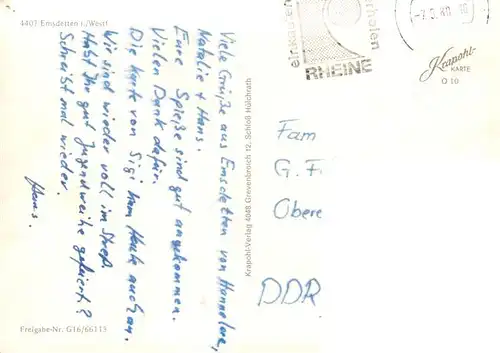 4407 Emsdetten i./Westf
Viele Grüße aus Emsdetten von Hannelore,
Natalie + Hans.
Eure Spieße sind gut angekommen.
Vielen Dank dafür.
Die Karte von Sigi kam Heute auch an.
Wir sind wieder voll im Streß.
Habt Ihr gut Jugendweihe gefeiert?
Schreibt mal wieder.
Hans.
Freigabe-Nr. G16/66113
Krapohl-Verlag 4048 Grevenbroich 12, Schloß Hülchrath
einkaufen
erholen
RHEINE
Krapohl-
KARTE
O 10
Fam
G. F
Obere
DDR